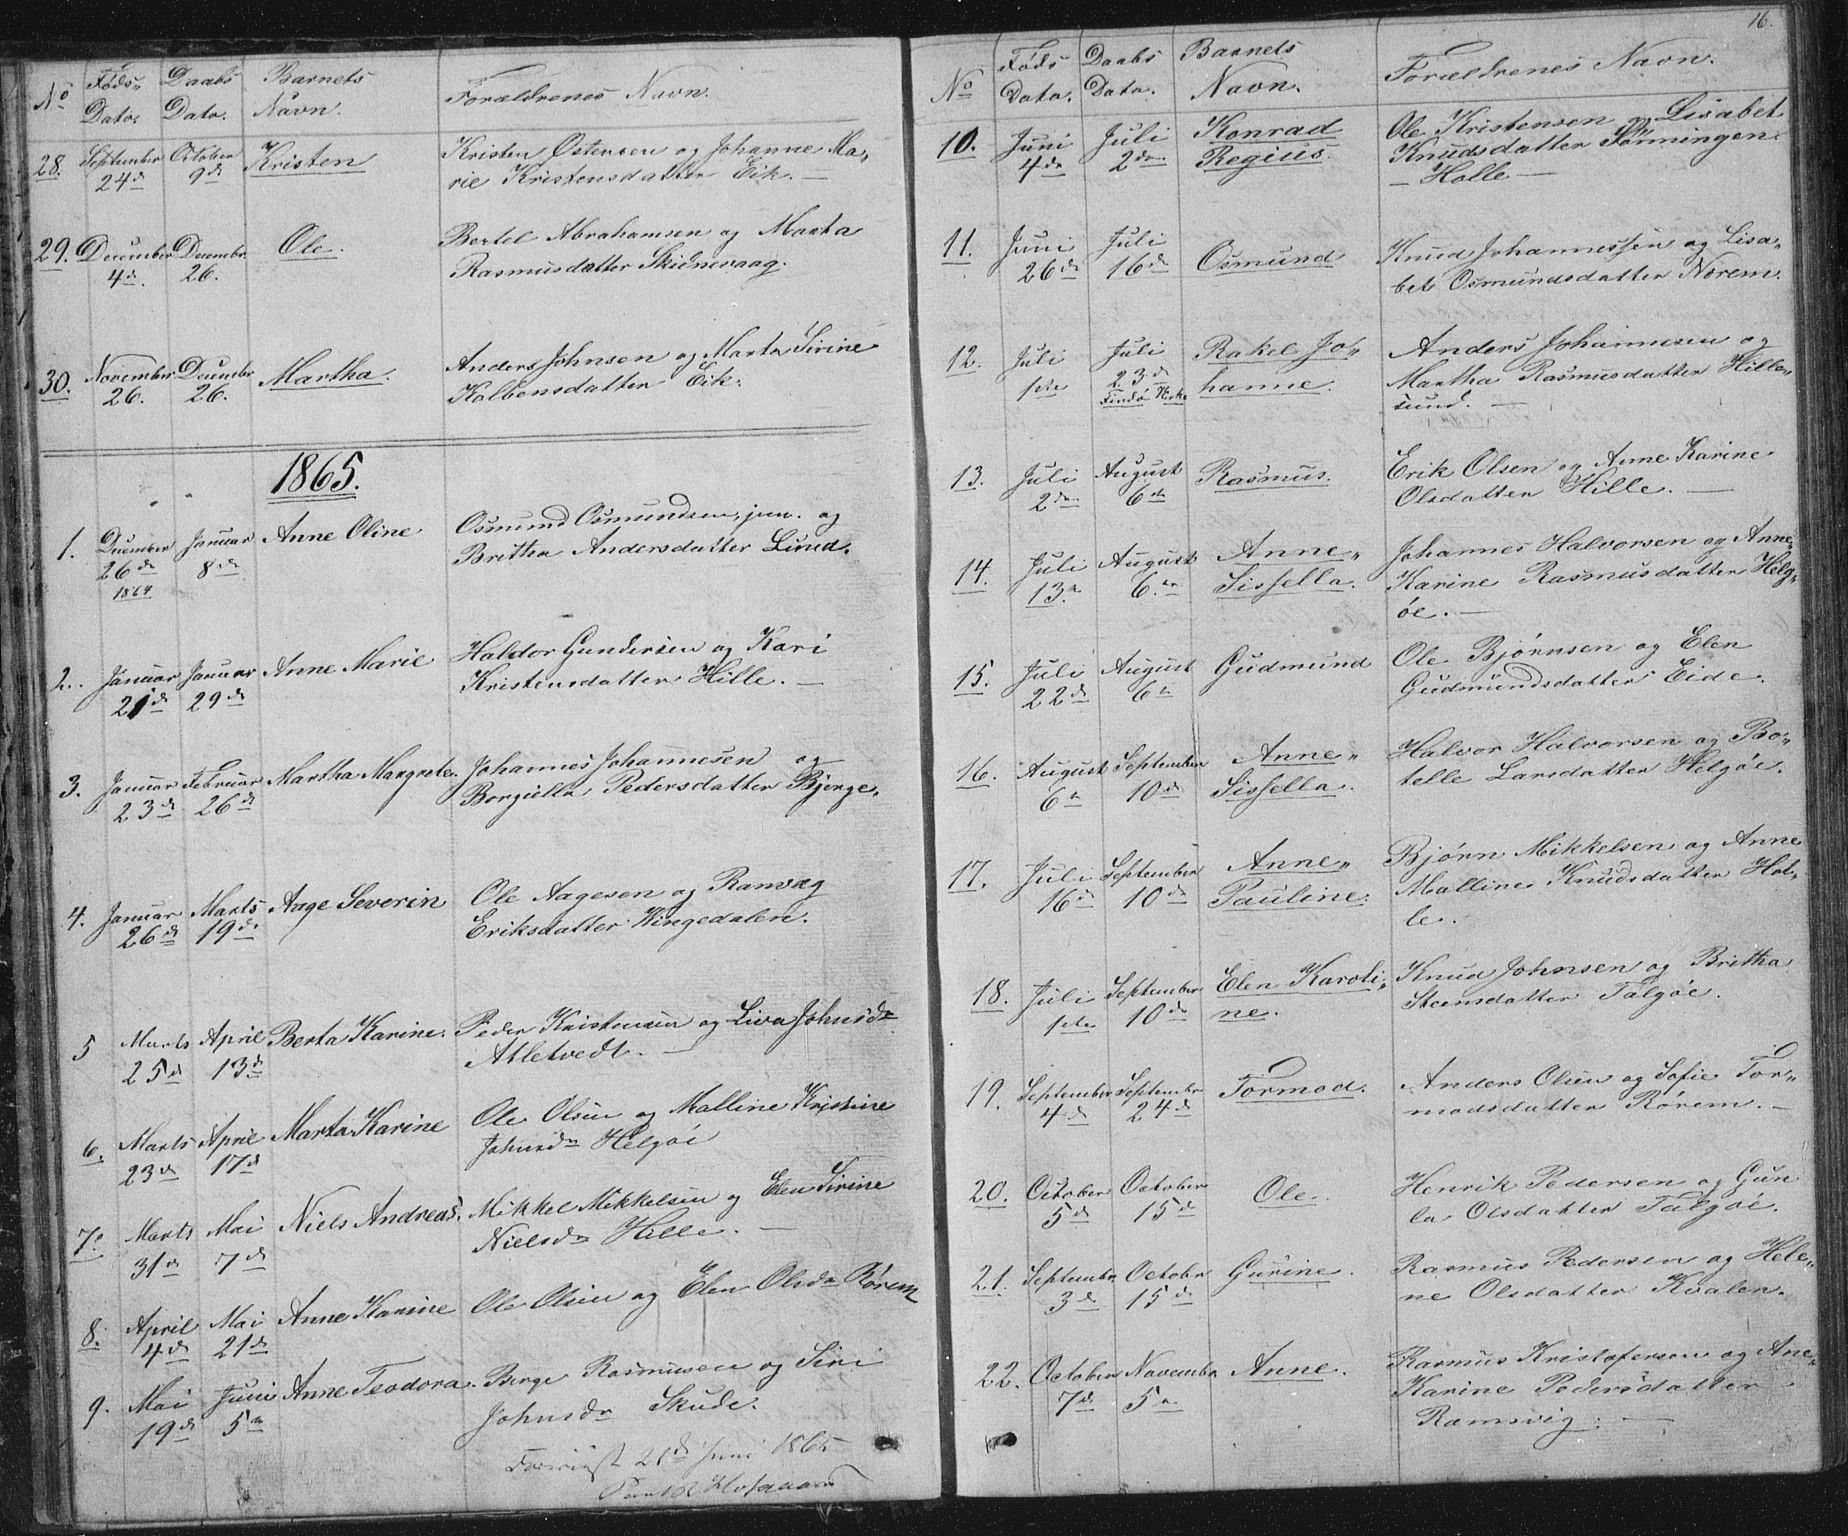 No Føds- Daabs Barnets Forældrenes Navn.
Dato. Dato. Navn.
28. September October Kristen Kristen Ostensen og Johanne Ma-
24de 9de rie Kristensdatter Eik. —
29. December Decembr Ole. Bertel Abrahamsen og Marta
4de. 26. Rasmusdatter Skidnevaag.
30. November Decembr Martha. Anders Johnsen og Marta Sirine
26. 26. Kolbensdatter Eik.
1865.
1. December Januar Anne Oline Osmund Osmundsen, jun. og
26de 8de Britha Andersdatter Lund.
1864
2. Januar Januar Anne Marie Haldor Gundersen og Kari
21de 29de Kristensdatter Hille. —
3. Januar Februar Martha Margrete. Johannes Johannesen og
23de 26de Borgilla Pedersdatter Bjerge.
4. Januar Marts Aage Severin Ole Aagesen og Ranvæg
26de 19de. Eriksdatter Wingedalen.
5 Marts April Berta Karine. Peder Kristensen og Liva Johnsdr
25de 13de Atletvedt. —
6. Marts April Marta Karine Ole Olsen og Malline Kristine
23de 17de Johnsdr Helgöe
7. Marts Mai Niels Andreas. Mikkel Mikkelsen og Elen Sirine
31de 7de Nielsdr Hille. —
8. April Mai Anne Karine Ole Olsen og Elen Olsdr Rørem
4de 21de
9. Mai Juni Anne Teodora. Berge Rasmusen og Siri
19de 5te Johnsdr Skude.
21de Juni 1865
16.
No Føds Daabs Barnets Forældrenes Navn.
Dato. Dato. Navn.
10. Juni Juli Konrad Ole Kristensen og Lisabet
4de 2den Regius. Knudsdatter Tønningen
— Holle —
11. Juni Juli Osmund Knud Johannessen og Lisa-
26de 16de bet Osmundsdatter Norem.
12. Juli Juli Rakel Jo- Anders Johannesen og
1ste 23de hanne. Martha Rasmusdatter Hille-
Findö Kirke sund. —
13. Juli August Rasmus. Erik Olsen og Anne Karine
2den 6te Olsdatter Hille. —
14. Juli August Anne- Johannes Halvorsen og Anne-
13. 6te Sissella. Karine Rasmusdatter Helg-
öe. —
15. Juli August Gudmund Ole Bjørnsen og Elen
22de 6te Gudmundsdatter Eide.
16. August September Anne- Halvor Halvorsen og Bo-
6te 10de Sissella. telle Larsdatter Helgöe.
17. Juli September Anne- Bjørn Mikkelsen og Anne
16de 10de Pauline. Malline Knudsdatter Hol-
le.
18. Juli September Elen Karoli- Knud Johnsen og Britha
1ste 10de ne. Steensdatter Talgöe.
19. September Septembr Tormod. Anders Olsen og Sofie Tor-
4de 24de modsdatter Rörem. —
20. October October Ole. Henrik Pedersen og Gun
5de 15de la Olsdatter Talgöe.
21. Septembr Octobr Gurine. Rasmus Pedersen og Hele-
3de 15de ne Olsdatter Kvalen.
22. October Novembr Anne. Rasmus Kristofersen og Ane-
7de 5te. Karine Pedersdatter
Ramsvig. —